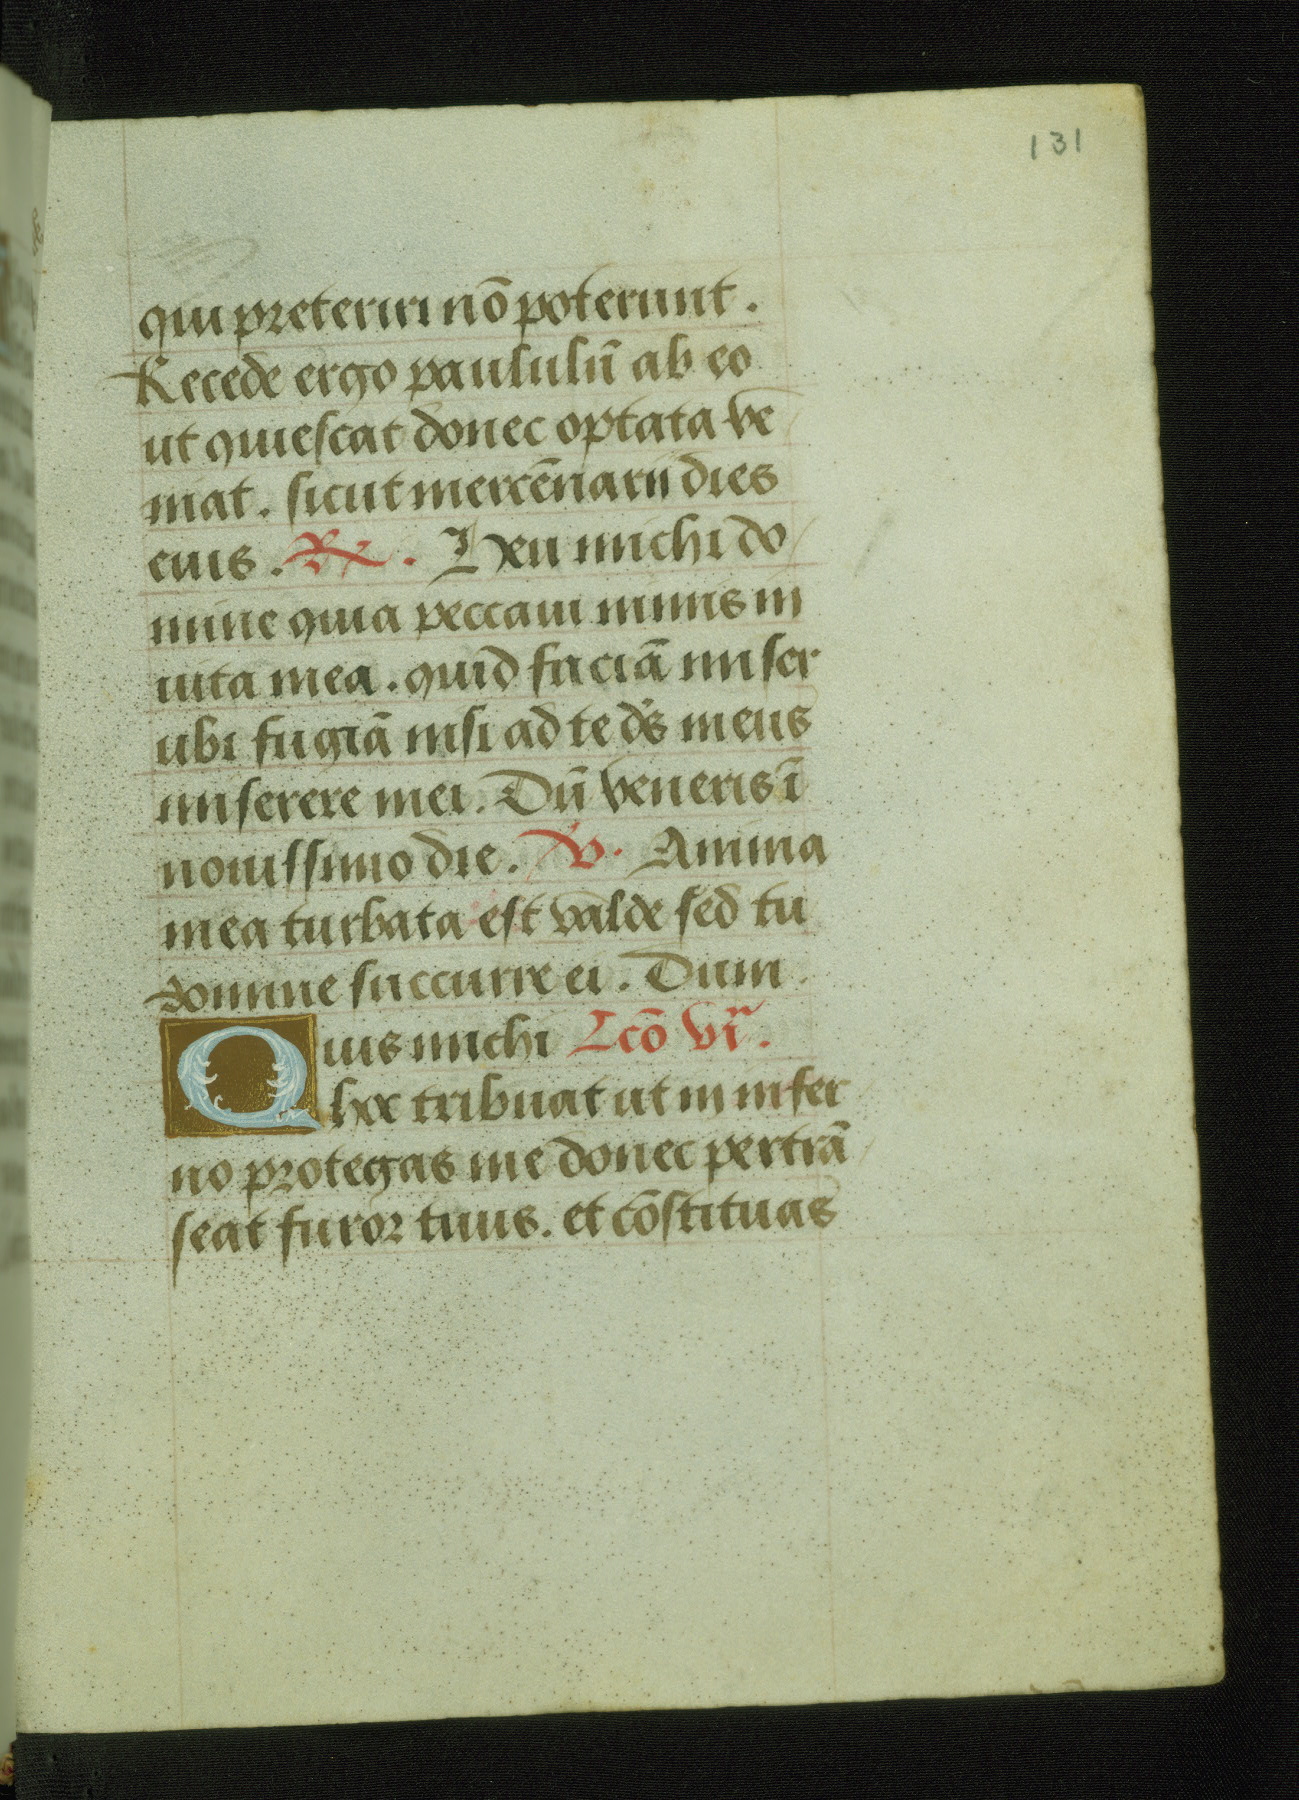 131
qui preteriri nō poterunt.
Recede ergo paululū ab eo
ut quiescat donec optata ve
niat. sicut mercēnarii dies
eius. ℟. Heu michi do
mine quia peccaui nimis in
uita mea. quid faciā miser
ubi fugiā nisi ad te ds̄ meus
miserere mei. Dū veneris ī
nouissimo die. ℣. Anima
mea turbata est valde sed tu
domine succurre ei. Dum
Quis michi Lcō vi.
hoc tribuat ut in infer
no protegas me donec pertrā
seat furor tuus. et cōstituas